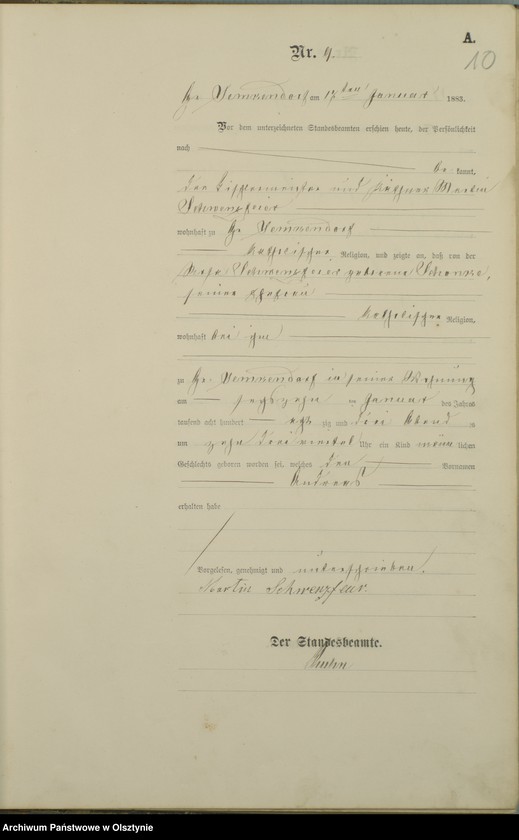 A.
10
Nr. 9.
Gr. am 17ten Januar 1883.
Vor dem unterzeichneten Standesbeamten erschien heute, der Persönlichkeit
nach
be kannt,
der und Käthner Martin
wohnhaft zu Gr.
katholischer Religion, und zeigte an, daß von der
geborene
seiner Ehefrau
katholischer Religion,
wohnhaft bei ihm
zu Gr. in seiner Wohnung
am sechszehn ten Januar des Jahres
tausend acht hundert acht zig und drei Abend s
um zehn drei viertel Uhr ein Kind männ lichen
Geschlechts geboren worden sei, welches den Vornamen
Andreas
erhalten habe
Vorgelesen, genehmigt und unterschrieben.
Martin Schwenzfeur.
Der Standesbeamte.
Archiwum Państwowe w Olsztynie